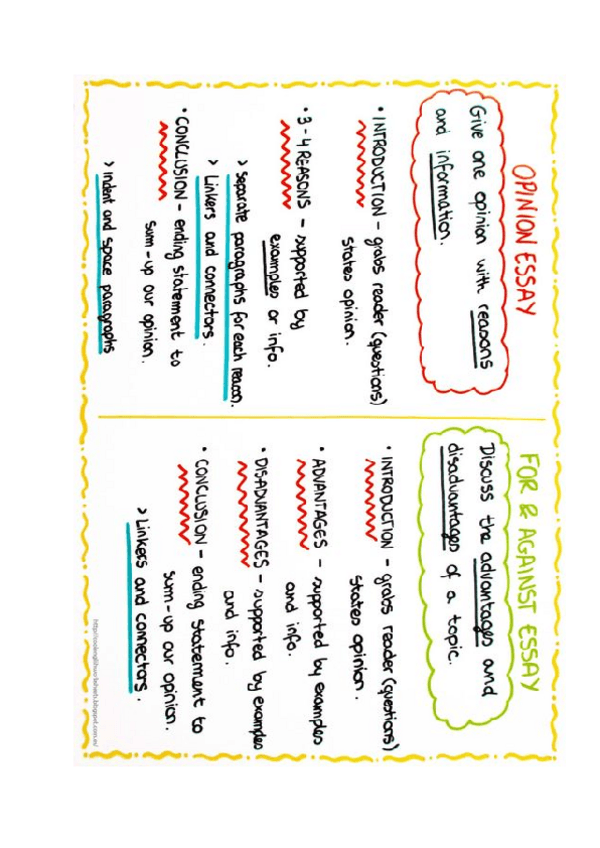 OPINION ESSAY
Give one opinion with reasons
and information.
• INTRODUCTION - grabs reader (questions)
states opinion.
• 3 - 4 REASONS - supported by
examples or info.
> Separate paragraphs for each reason.
> Linkers and connectors.
• CONCLUSION - ending statement to
sum-up our opinion.
> Indent and space paragraphs
FOR & AGAINST ESSAY
Discuss the advantages and
disadvantages of a topic.
• INTRODUCTION - grabs reader (questions)
states opinion.
• ADVANTAGES - supported by examples
and info.
• DISADVANTAGES - supported by examples
and info.
• CONCLUSION - ending statement to
sum-up our opinion.
> Linkers and connectors.